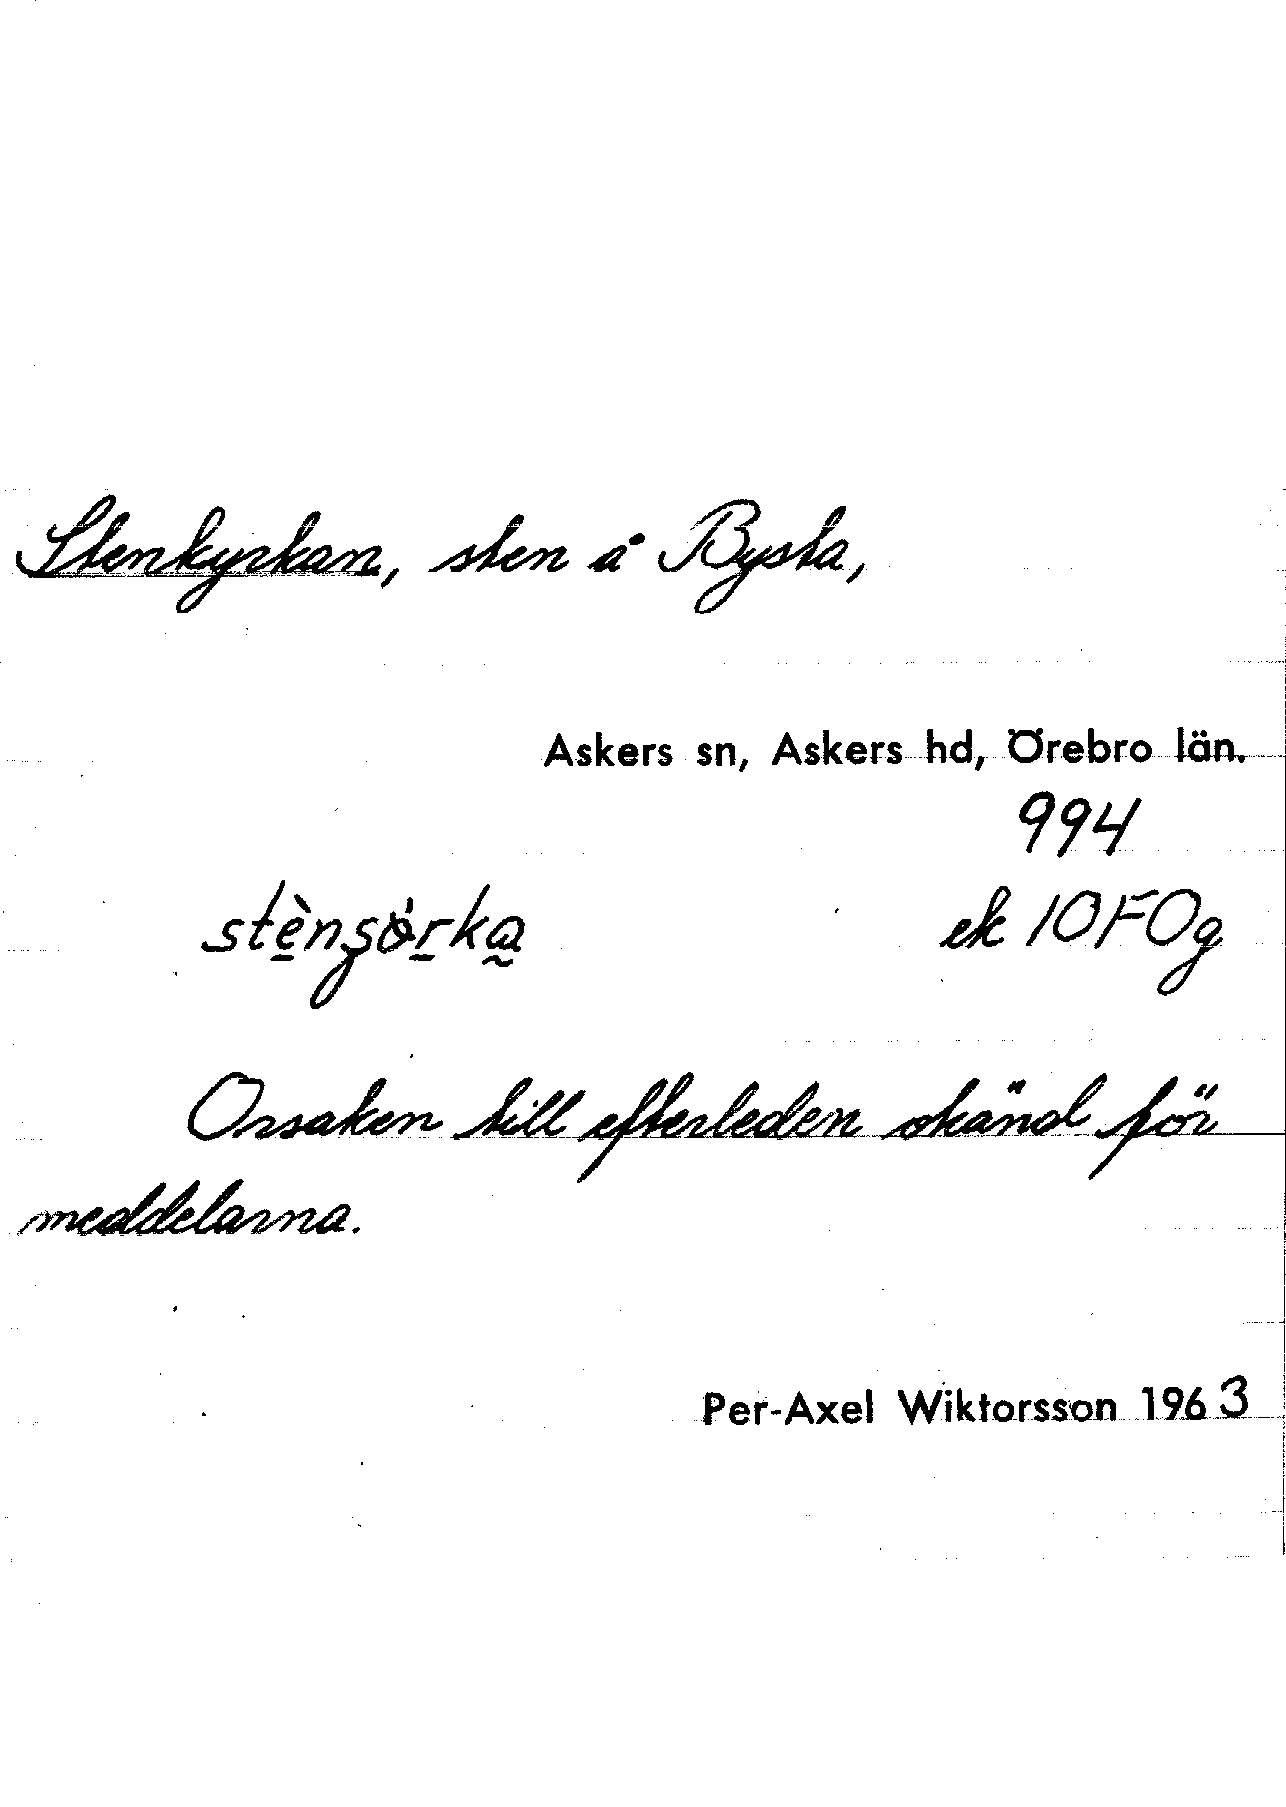 Stenkyrkan, sten å Bysta,
Askers sn, Askers hd, Örebro län.
994
ek 10F0g
Orsaken till efterleden okänd för
meddelarna.
Per-Axel Wiktorsson 1963